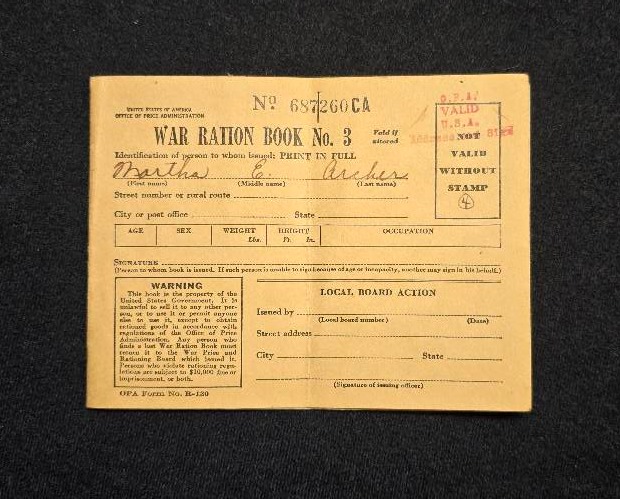 UNITED STATES OF AMERICA
OFFICE OF PRICE ADMINISTRATION
Nº 687260CA
WAR RATION BOOK No. 3
Void if
altered
O.P.A.
VALID
U.S.A.
NOT
VALID
WITHOUT
STAMP
4
Identification of person to whom issued: PRINT IN FULL
Martha E. Archer
(First name) (Middle name) (Last name)
Street number or rural route
City or post office State
AGE SEX WEIGHT Lbs. HEIGHT Ft. In. OCCUPATION
SIGNATURE
(Person to whom book is issued. If such person is unable to sign because of age or incapacity, another may sign in his behalf.)
WARNING
This book is the property of the
United States Government. It is
unlawful to sell it to any other per-
son, or to use it or permit anyone
else to use it, except to obtain
rationed goods in accordance with
regulations of the Office of Price
Administration. Any person who
finds a lost War Ration Book must
return it to the War Price and
Rationing Board which issued it.
Persons who violate rationing regu-
lations are subject to $10,000 fine or
imprisonment, or both.
LOCAL BOARD ACTION
Issued by
(Local board number) (Date)
Street address
City State
(Signature of issuing officer)
OPA Form No. R-130